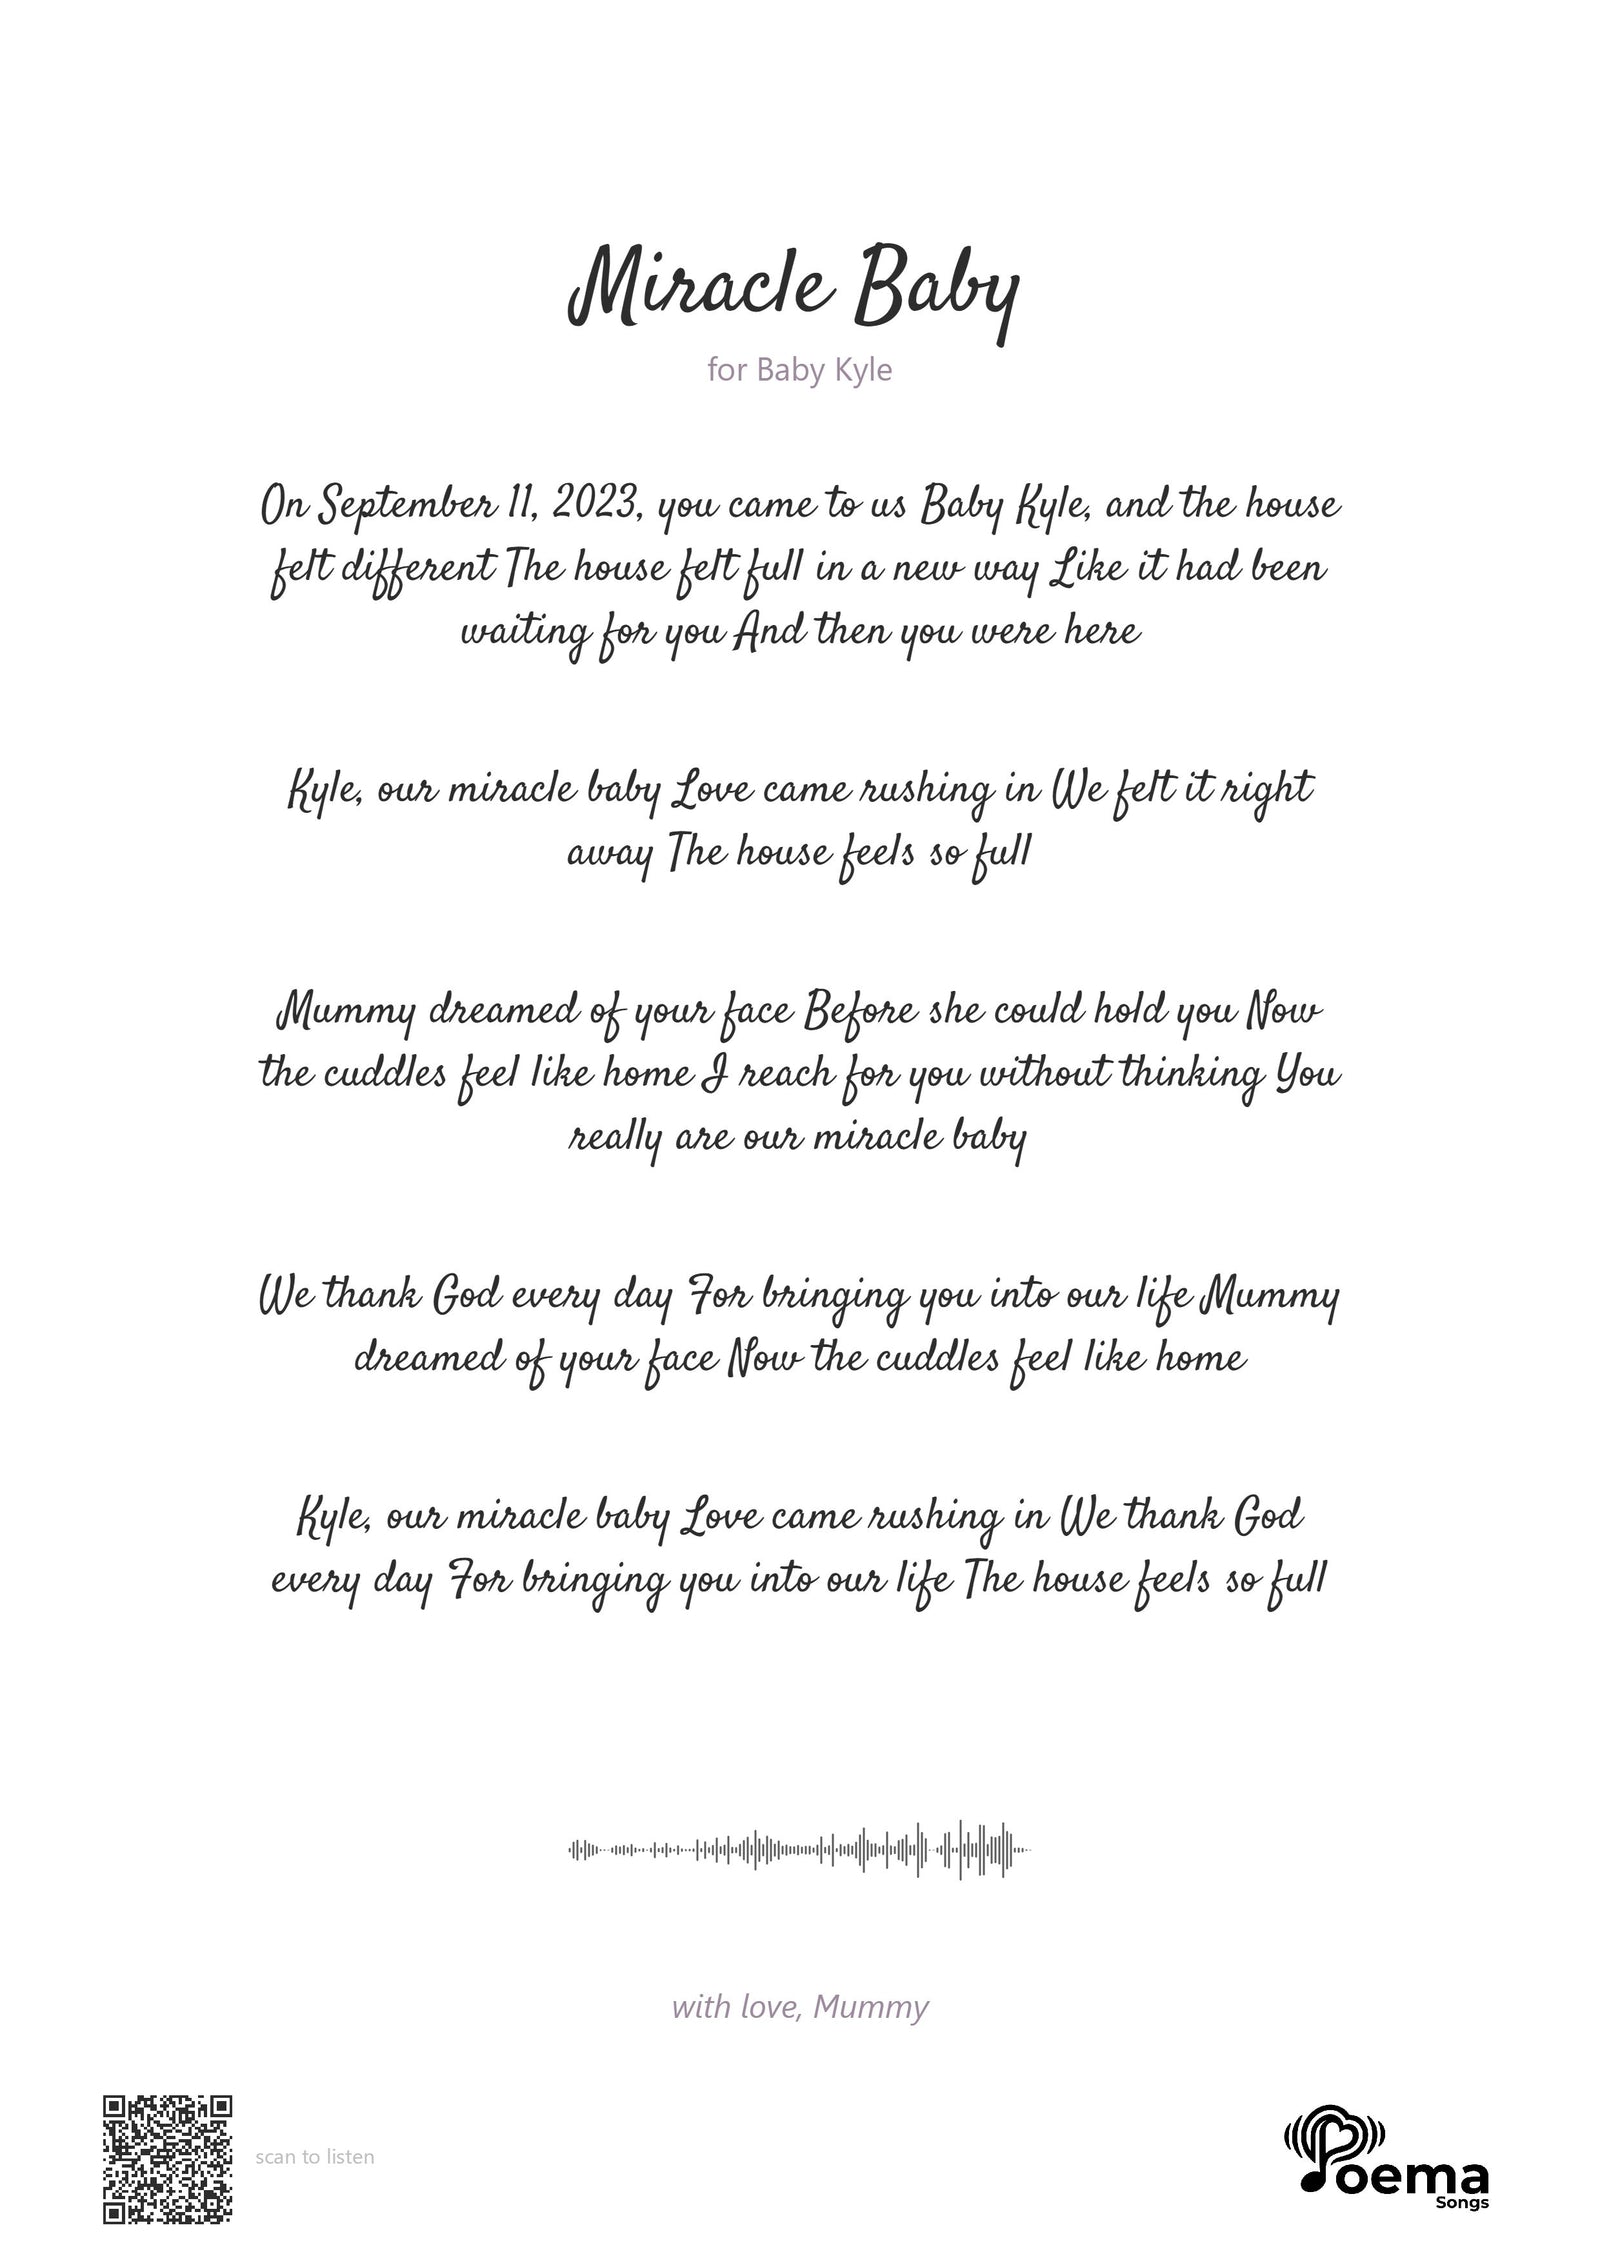 Miracle Baby
for Baby Kyle
On September 11, 2023, you came to us Baby Kyle, and the house
felt different The house felt full in a new way Like it had been
waiting for you And then you were here
Kyle, our miracle baby Love came rushing in We felt it right
away The house feels so full
Mummy dreamed of your face Before she could hold you Now
the cuddles feel like home I reach for you without thinking You
really are our miracle baby
We thank God every day For bringing you into our life Mummy
dreamed of your face Now the cuddles feel like home
Kyle, our miracle baby Love came rushing in We thank God
every day For bringing you into our life The house feels so full
with love, Mummy
scan to listen
Poema
Songs